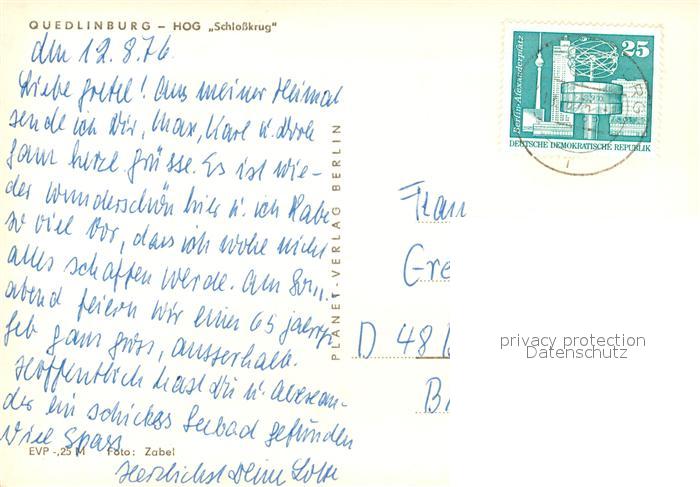 QUEDLINBURG – HOG „Schloßkrug"
den 12.8.76
Liebe Gretel! Aus meiner Heimat
sende ich Dir, Max, Karl u. Dorle
ganz herzl. Grüsse. Es ist wie-
der wunderschön hier u. ich habe
so viel vor, dass ich wohl nicht
alles schaffen werde. Am
abend feiern wir einen 65 jährig.
Geb ganz gross, ausserhalb.
Hoffentlich hast Du u.
der ein schickes Seebad gefunden
Viel Spass
Herzlichst Deine Lotte
EVP -,25 M Foto: Zabel
PLANET-VERLAG BERLIN
25
Berlin-Alexanderplatz
DEUTSCHE DEMOKRATISCHE REPUBLIK
Frau
Gre
D 48
privacy protection
Datenschutz